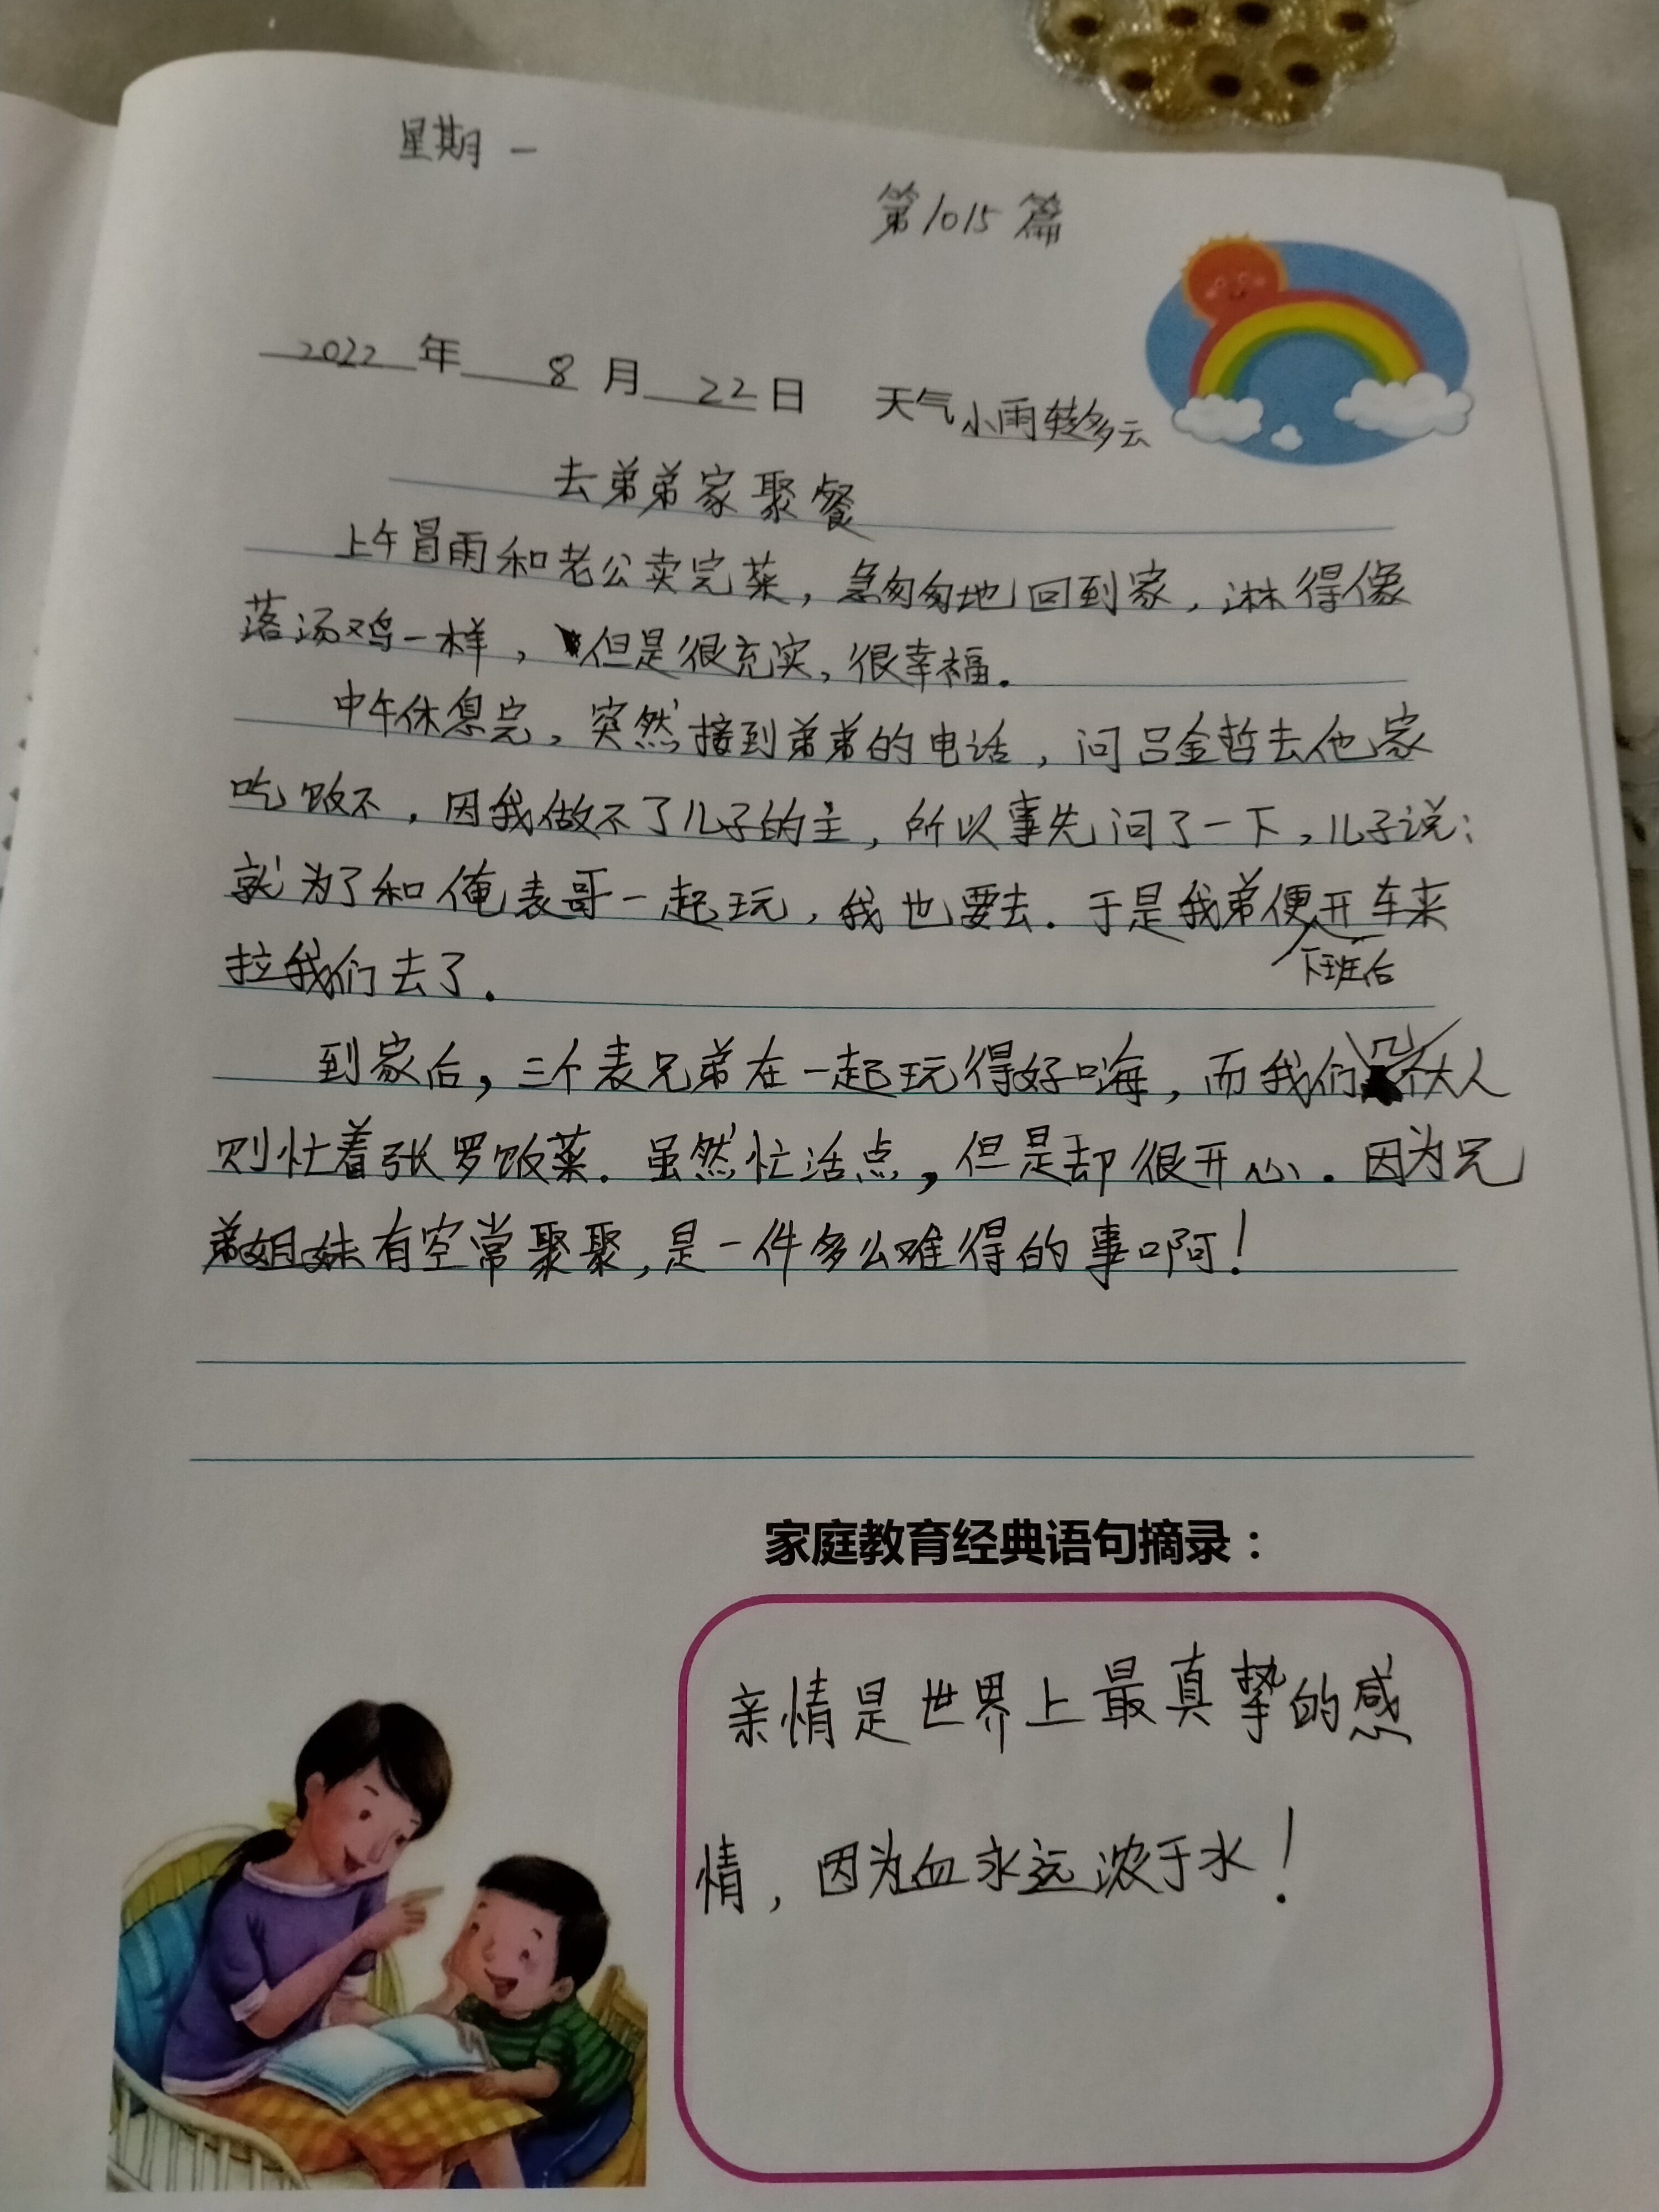 星期一
第1015篇
2022年 8月22日 天气小雨转多云
去弟弟家聚餐
上午冒雨和老公卖完菜，急匆匆地回到家，淋得像
落汤鸡一样，但是很充实，很幸福。
中午休息完，突然接到弟弟的电话，问吕金哲去他家
吃饭不，因我做不了儿子的主，所以事先问了一下，儿子说：
就为了和俺表哥一起玩，我也要去。于是我弟便下班后开车来
拉我们去了。
到家后，三个表兄弟在一起玩得好嗨，而我们几个大人
则忙着张罗饭菜。虽然忙活点，但是却很开心。因为兄
弟姐妹有空常聚聚，是一件多么难得的事啊！
家庭教育经典语句摘录：
亲情是世界上最真挚的感
情，因为血永远浓于水！